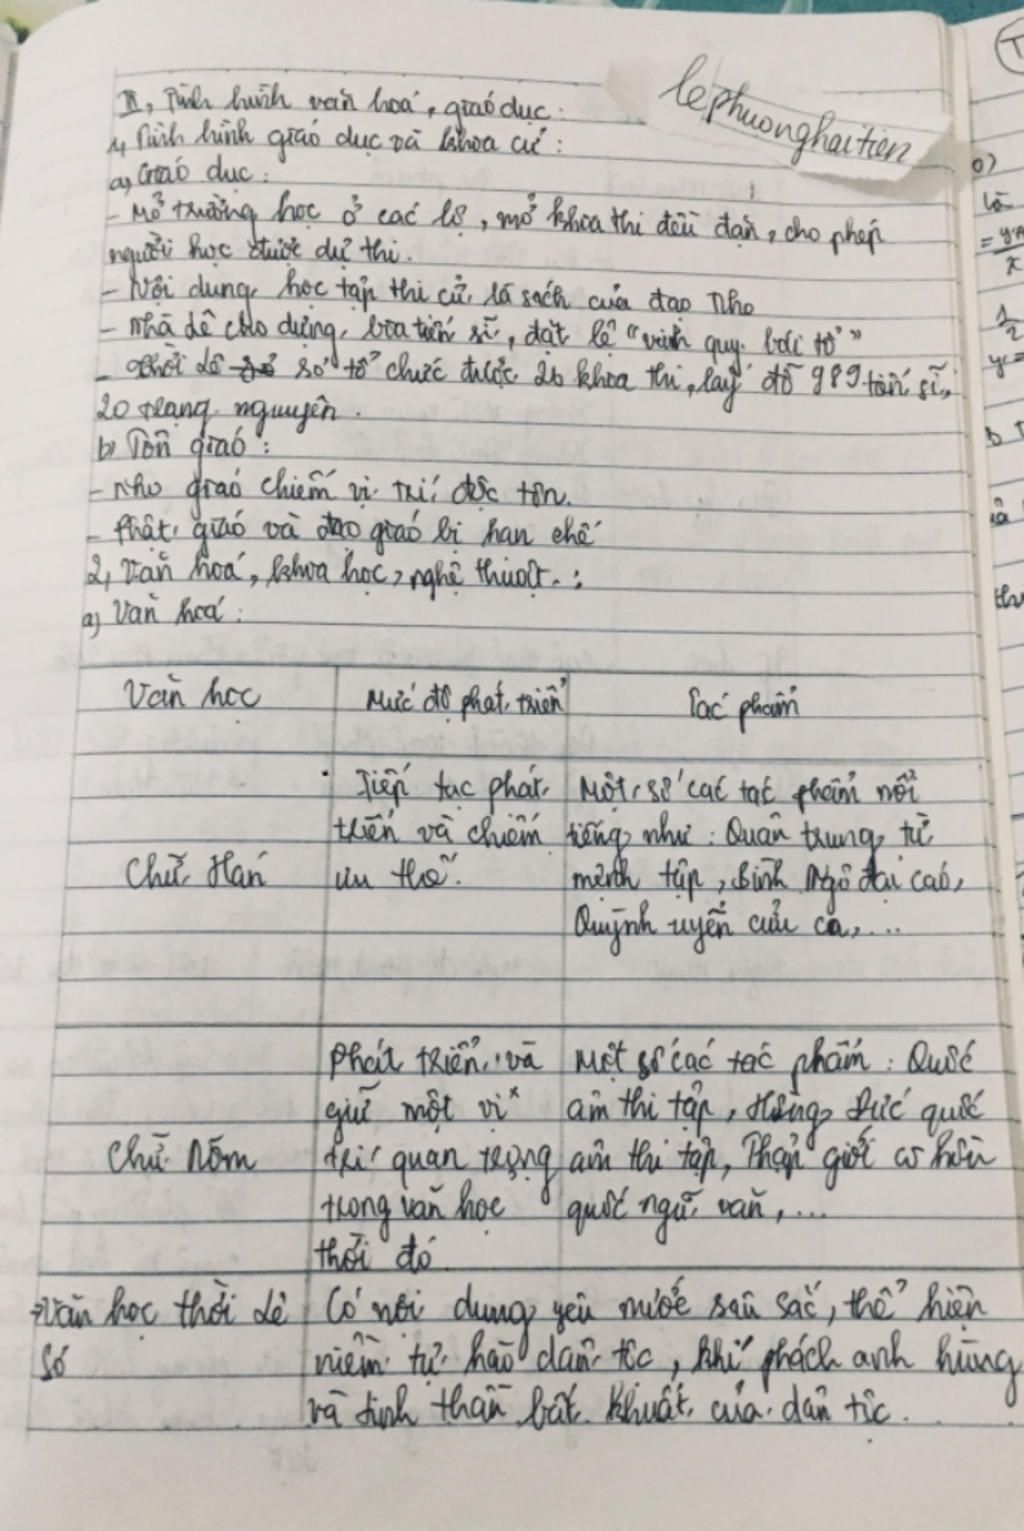 II, Tình hình văn hoá, giáo dục:
lephuonghaitien
1, Tình hình giáo dục và khoa cử:
a, Giáo dục:
- Mở trường học ở các lộ, mở khoa thi đều đặn, cho phép
người học được dự thi.
- Nội dung học tập thi cử là sách của đạo Nho
- Nhà Lê cho dựng bia tiến sĩ, đặt lệ "vinh quy bái tổ"
- Thời Lê sơ tổ chức được 26 khoa thi, lấy đỗ 989 tiến sĩ,
20 trạng nguyên.
b, Tôn giáo:
- Nho giáo chiếm vị trí độc tôn.
- Phật giáo và đạo giáo bị hạn chế
2, Văn hoá, khoa học, nghệ thuật:
a) Văn hoá:
Văn học Mức độ phát triển Tác phẩm
Tiếp tục phát Một số các tác phẩm nổi
triển và chiếm tiếng như: Quân trung từ
Chữ Hán ưu thế. mệnh tập, Bình Ngô đại cáo,
Quỳnh uyển cửu ca,...
Phát triển và Một số các tác phẩm: Quốc
giữ một vị âm thi tập, Hồng Đức quốc
Chữ Nôm trí quan trọng âm thi tập, Thập giới cô hồn
trong văn học quốc ngữ văn,...
thời đó
→Văn học thời Lê Có nội dung yêu nước sâu sắc, thể hiện
sơ niềm tự hào dân tộc, khí phách anh hùng
và tinh thần bất khuất của dân tộc.